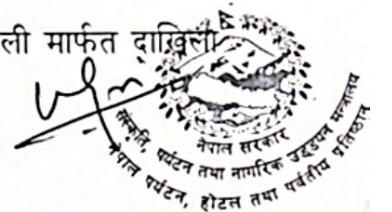 ली मार्फत दाखिला
नेपाल सरकार
संस्कृति, पर्यटन तथा नागरिक उड्डयन मन्त्रालय
नेपाल पर्यटन, होटल तथा पर्वतीय प्रतिष्ठान